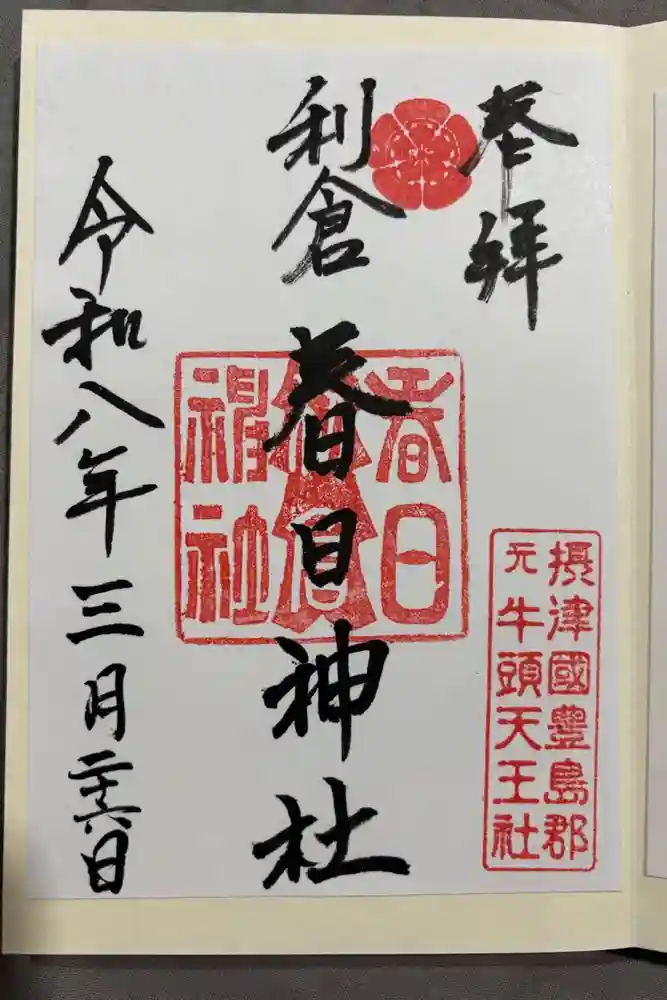 奉拝
摂津國豊島郡
元牛頭天王社
利倉
春日神社
春日
神社
令和八年三月二十六日